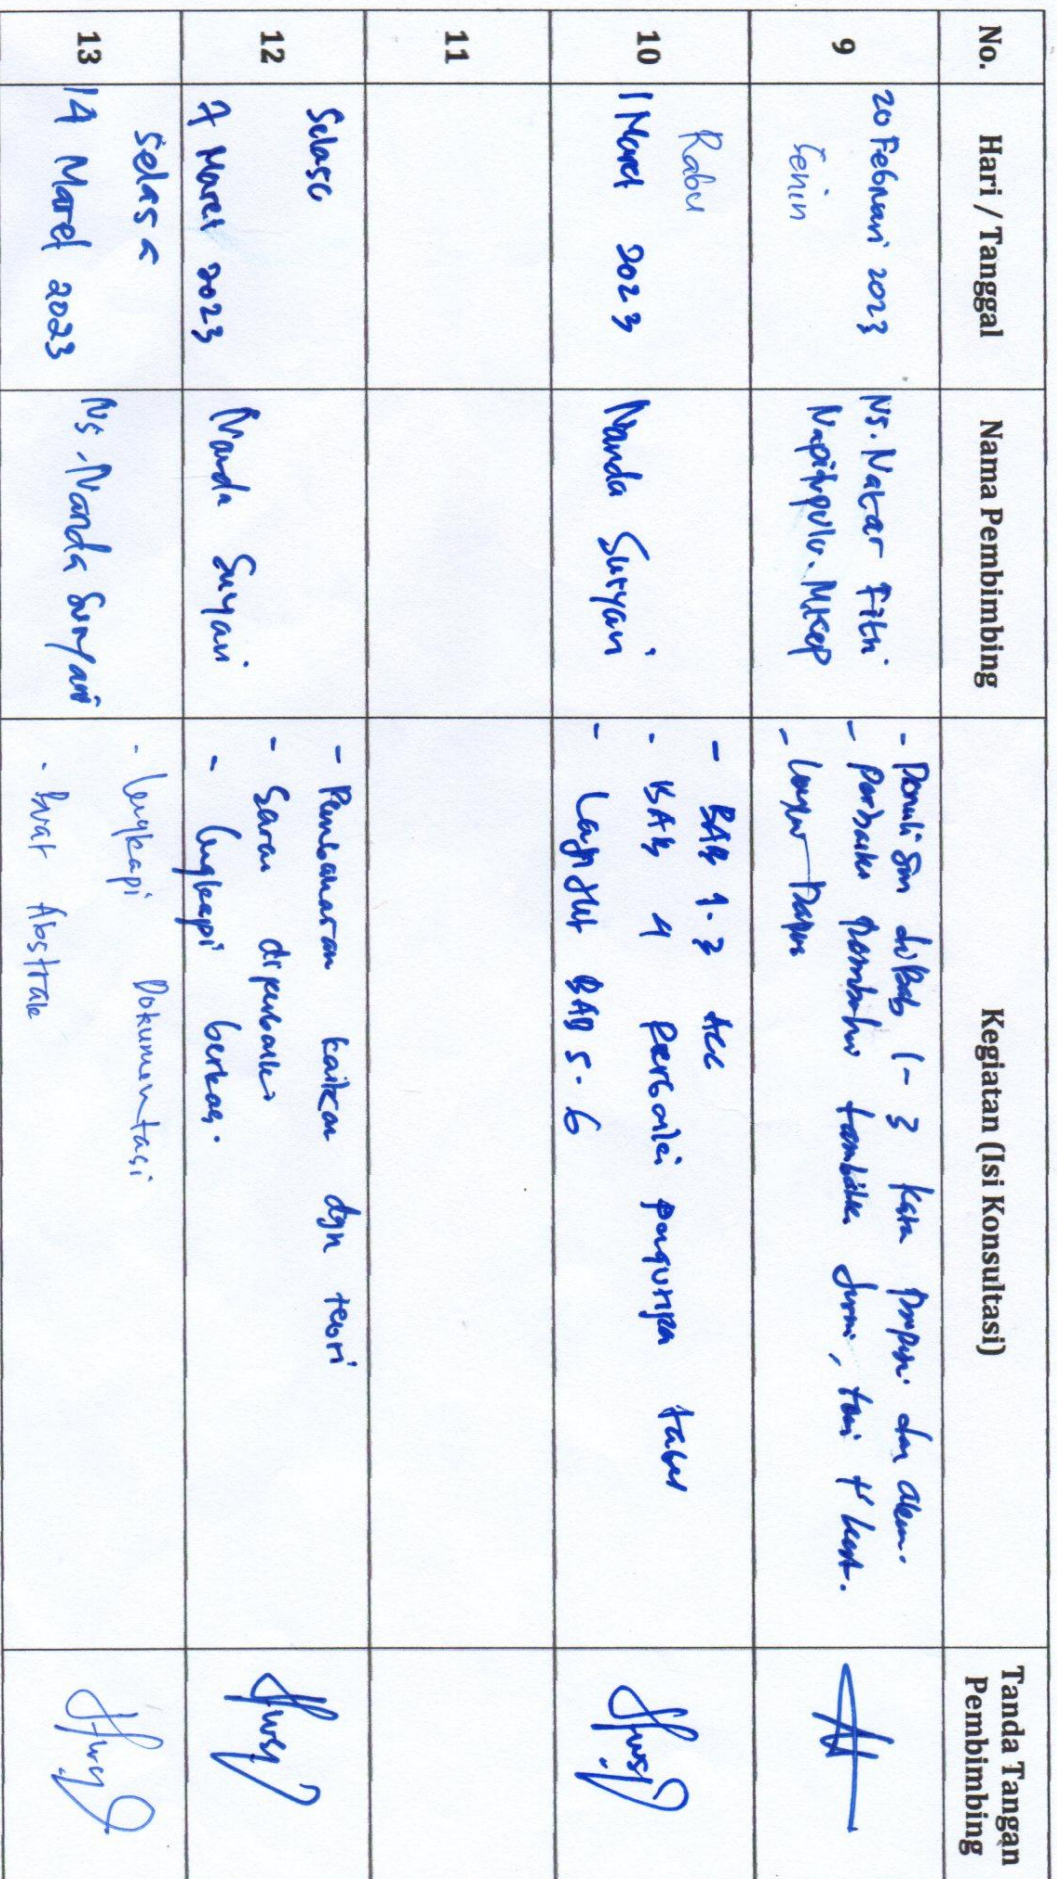 No.
Hari / Tanggal
Nama Pembimbing
Kegiatan (Isi Konsultasi)
Tanda Tangan
Pembimbing
9
20 Februari 2023
Senin
Ns. Natar Fitri
Napitupulu. MKep
- di Bab 1 - 3 kata dan
- Perbaiki
10
Rabu
1 Maret 2023
Nanda Suryani
- BAB 1-3 Acc
- BAB 4 perbaiki tabel
- Lanjut BAB 5-6
11
12
Selasa
7 Maret 2023
Nanda Suryani
- Pembahasan kaitkan dgn teori
- Saran diperbaiki
- lengkapi berkas.
13
Selasa
14 Maret 2023
Ns. Nanda Suryani
- lengkapi Dokumentasi
- Buat Abstrak